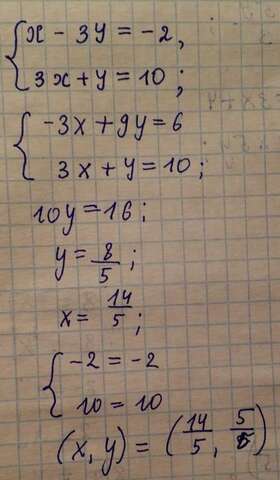 { x - 3y = -2,
3x + y = 10;
{ -3x + 9y = 6
3x + y = 10;
10y = 16;
y = 8/5;
x = 14/5;
{ -2 = -2
10 = 10
(x, y) = (14/5,